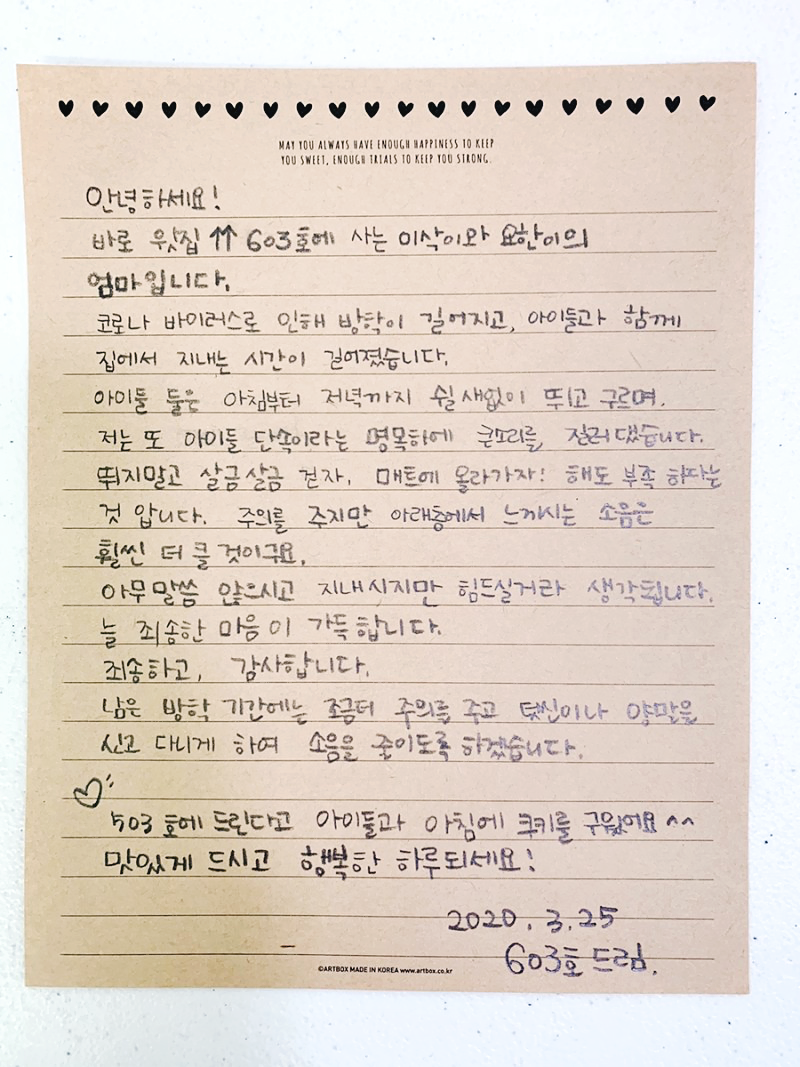 MAY YOU ALWAYS HAVE ENOUGH HAPPINESS TO KEEP
YOU SWEET, ENOUGH TRIALS TO KEEP YOU STRONG.
안녕하세요!
바로 윗집 ↑↑ 603호에 사는 이삭이와 요한이의
엄마입니다.
코로나 바이러스로 인해 방학이 길어지고, 아이들과 함께
집에서 지내는 시간이 길어졌습니다.
아이들 둘은 아침부터 저녁까지 쉴새없이 뛰고 구르며.
저는 또 아이들 단속이라는 명목하에 큰소리를, 질러댔습니다.
뛰지말고 살금살금 걷자, 매트에 올라가자! 해도 부족 하다는
것 압니다. 주의를 주지만 아래층에서 느끼시는 소음은
훨씬 더 클 것이구요,
아무말씀 않으시고 지내시지만 힘드실거라 생각됩니다.
늘 죄송한 마음이 가득합니다.
죄송하고, 감사합니다.
남은 방학 기간에는 조금더 주의를 주고 덧신이나 양말을
신고 다니게 하여 소음을 줄이도록 하겠습니다.
503호에 드린다고 아이들과 아침에 쿠키를 구웠어요^^
맛있게 드시고 행복한 하루되세요!
2020. 3. 25
603호 드림.
©ARTBOX MADE IN KOREA www.artbox.co.kr